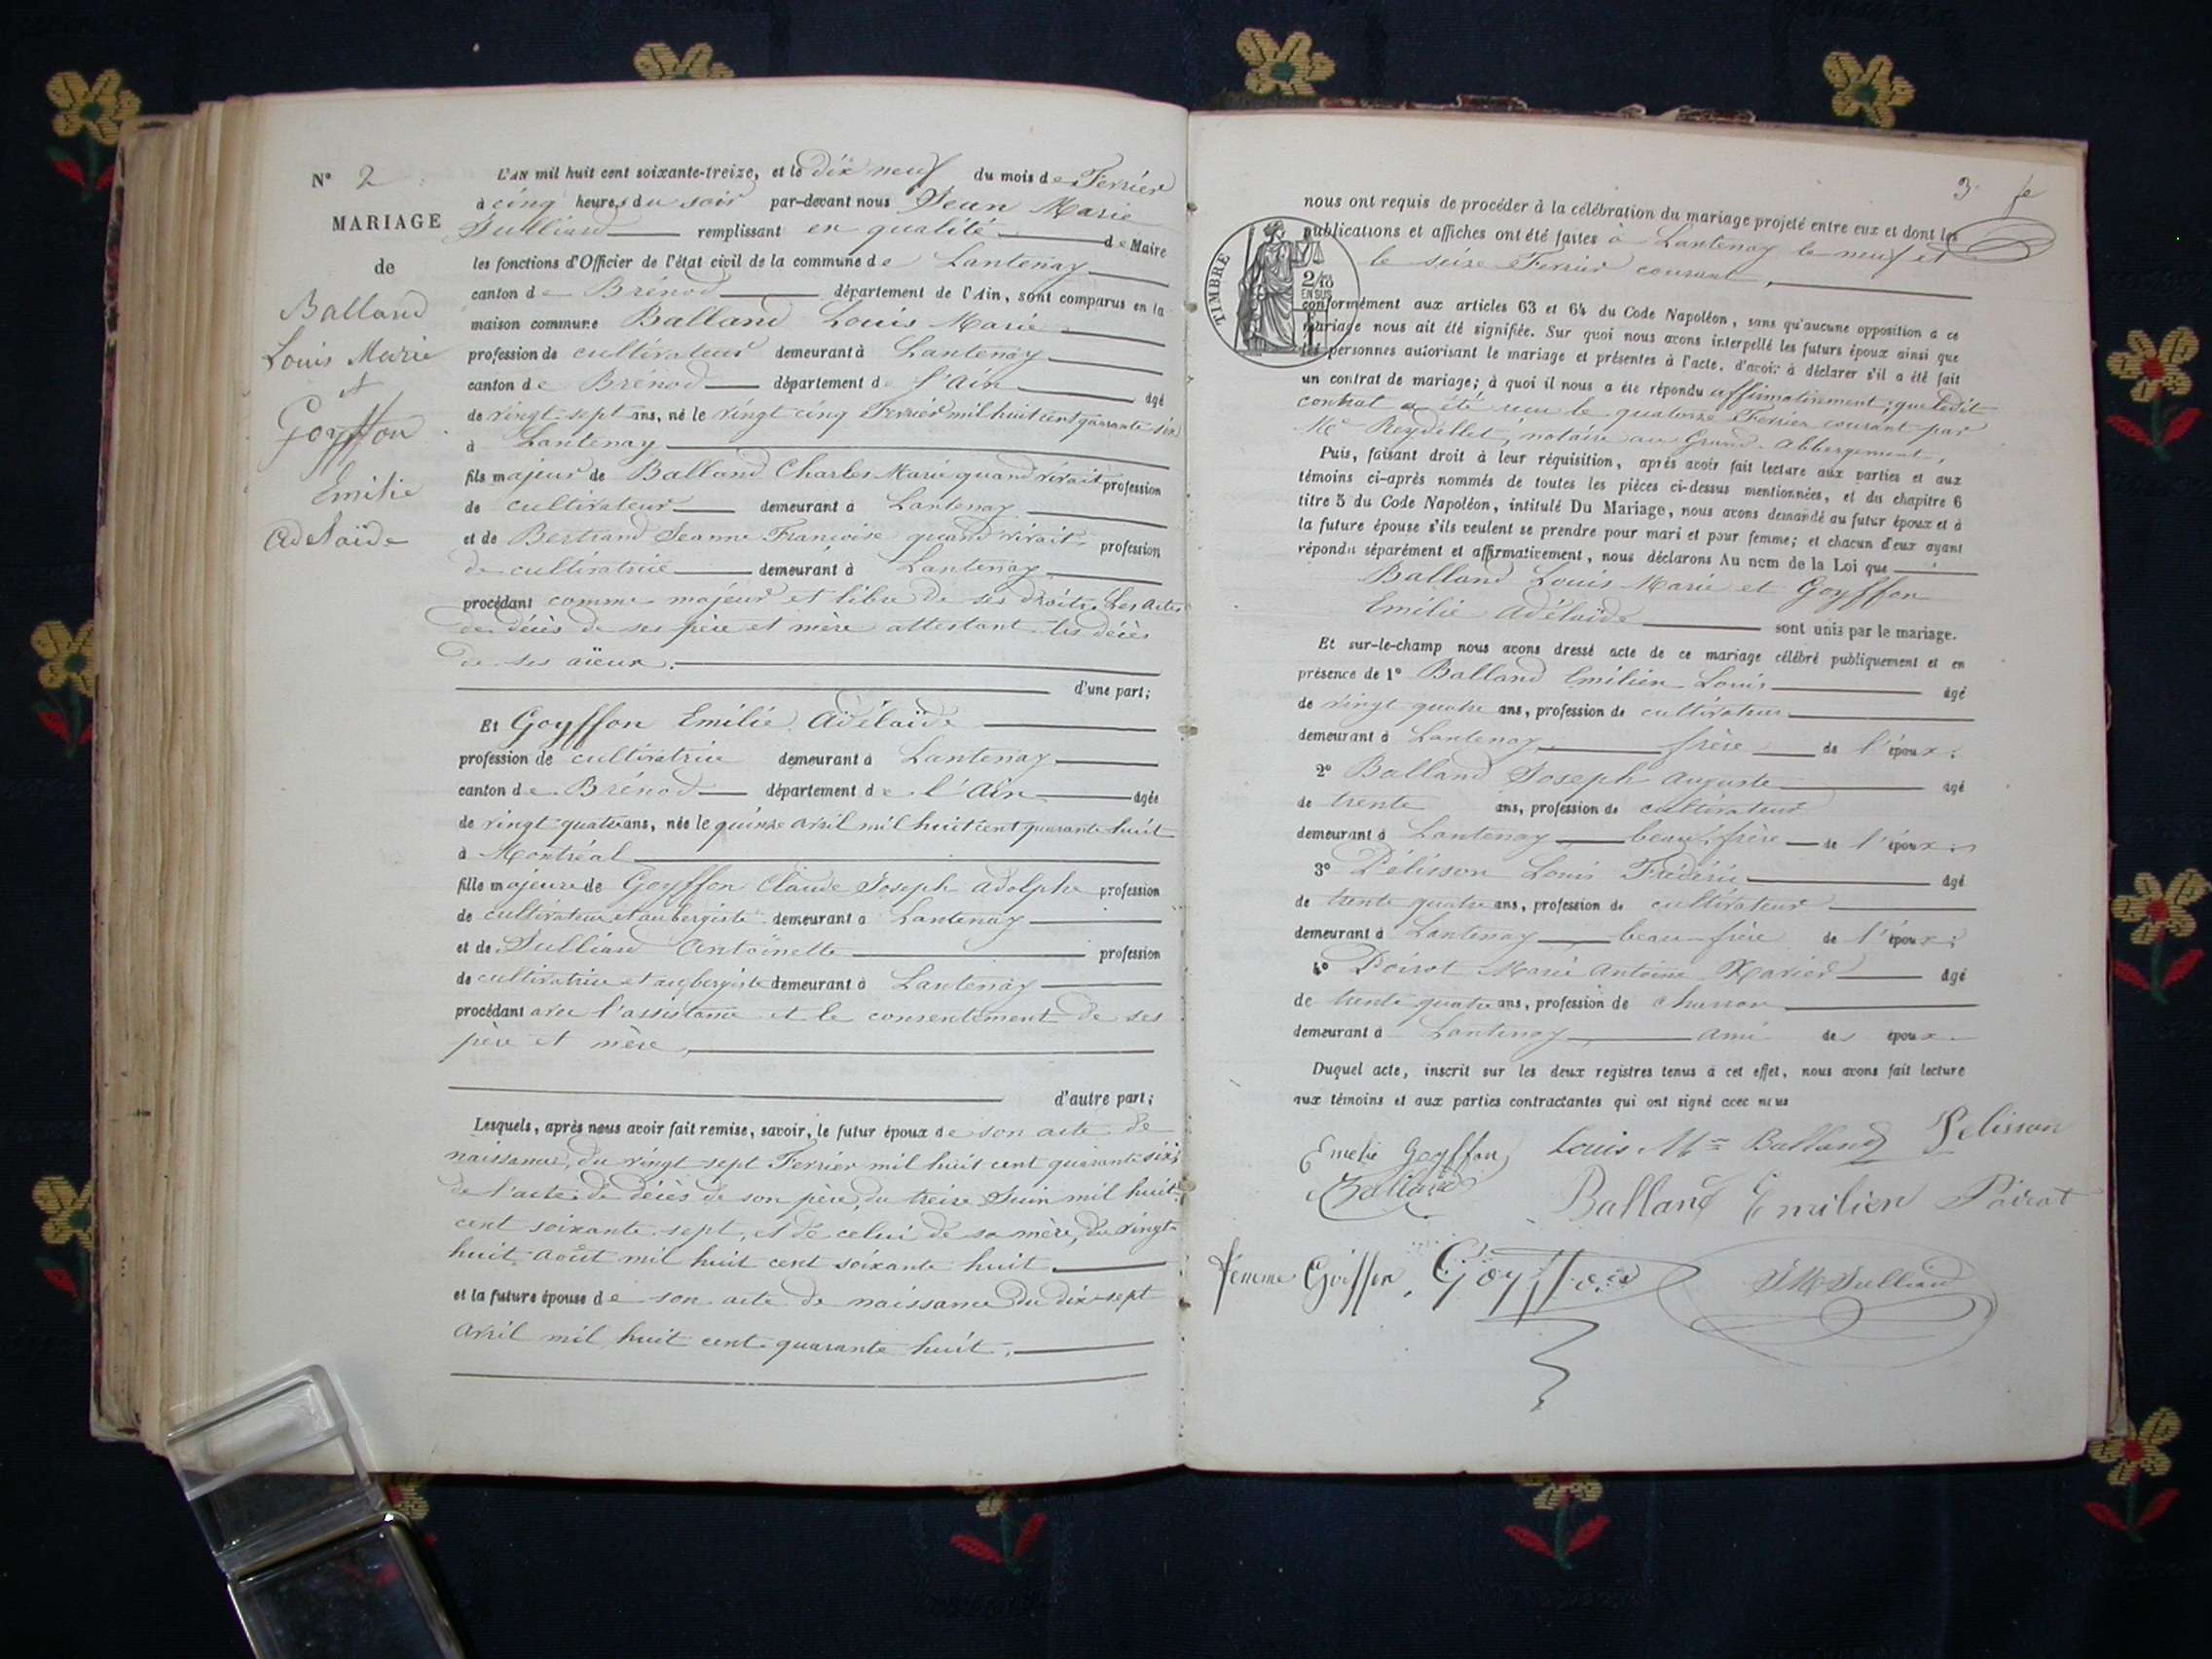 N° 2
MARIAGE
de
Balland
Louis Marie
et
Goyffon
Emilie
Adélaïde
L'AN mil huit cent soixante-treize, et le dix neuf du mois de Février
à cinq heures du soir par-devant nous Jean Marie
Julliard remplissant en qualité de Maire
les fonctions d'Officier de l'état civil de la commune de Lantenay
canton de Brénod département de l'Ain, sont comparus en la
maison commune Balland Louis Marie
profession de cultivateur demeurant à Lantenay
canton de Brénod département de l'Ain âgé
de vingt-sept ans, né le vingt cinq Février mil huit cent quarante six
à Lantenay
fils majeur de Balland Charles Marie quand vivait profession
de cultivateur demeurant à Lantenay
et de Bertrand Jeanne Françoise quand vivait profession
de cultivatrice demeurant à Lantenay
procédant comme majeur et libre de ses droits. Les actes
de décès de ses père et mère attestant les décès
de ses aïeux.
d'une part;
Et Goyffon Emilie Adélaïde
profession de cultivatrice demeurant à Lantenay
canton de Brénod département de l'Ain âgée
de vingt quatre ans, née le quinze avril mil huit cent quarante huit
à Montréal
fille majeure de Goyffon Claude Joseph Adolphe profession
de cultivateur et aubergiste demeurant à Lantenay
et de Julliard Antoinette profession
de cultivatrice et aubergiste demeurant à Lantenay
procédant avec l'assistance et le consentement de ses
père et mère,
d'autre part;
Lesquels, après nous avoir fait remise, savoir, le futur époux de son acte de
naissance, du vingt sept Février mil huit cent quarante six;
de l'acte de décès de son père, du treize Juin mil huit
cent soixante sept, et de celui de sa mère, du vingt
huit Août mil huit cent soixante huit.
et la future épouse de son acte de naissance du dix-sept
Avril mil huit cent quarante huit,
3
nous ont requis de procéder à la célébration du mariage projeté entre eux et dont les
publications et affiches ont été faites à Lantenay le neuf et
le seize Février courant,
TIMBRE
2/10
EN SUS
conformément aux articles 63 et 64 du Code Napoléon, sans qu'aucune opposition a ce
mariage nous ait été signifiée. Sur quoi nous avons interpellé les futurs époux ainsi que
les personnes autorisant le mariage et présentes à l'acte, d'avoir à déclarer s'il a été fait
un contrat de mariage; à quoi il nous a été répondu affirmativement; que ledit
contrat a été reçu le quatorze Février courant par
Me Reydellet, notaire au Grand-Abbergement,
Puis, faisant droit à leur réquisition, après avoir fait lecture aux parties et aux
témoins ci-après nommés de toutes les pièces ci-dessus mentionnées, et du chapitre 6
titre 5 du Code Napoléon, intitulé Du Mariage, nous avons demandé au futur époux et à
la future épouse s'ils veulent se prendre pour mari et pour femme; et chacun d'eux ayant
répondu séparément et affirmativement, nous déclarons Au nom de la Loi que
Balland Louis Marie et Goyffon
Emilie Adélaïde sont unis par le mariage.
Et sur-le-champ nous avons dressé acte de ce mariage célébré publiquement et en
présence de 1° Balland Emilien Louis âgé
de vingt quatre ans, profession de cultivateur
demeurant à Lantenay frère de l'époux;
2° Balland Joseph Auguste âgé
de trente ans, profession de cultivateur
demeurant à Lantenay beau-frère de l'époux;
3° Pélisson Louis Frédéric âgé
de trente quatre ans, profession de cultivateur
demeurant à Lantenay beau-frère de l'époux;
4° Poirot Marie Antoine Xavier âgé
de trente quatre ans, profession de charron
demeurant à Lantenay ami des époux.
Duquel acte, inscrit sur les deux registres tenus à cet effet, nous avons fait lecture
aux témoins et aux parties contractantes qui ont signé avec nous
Emelie Goyffon Louis Mie Balland Pelisson
Balland Balland Emilien Poirot
femme Goiffon, Goyffon JM Julliard